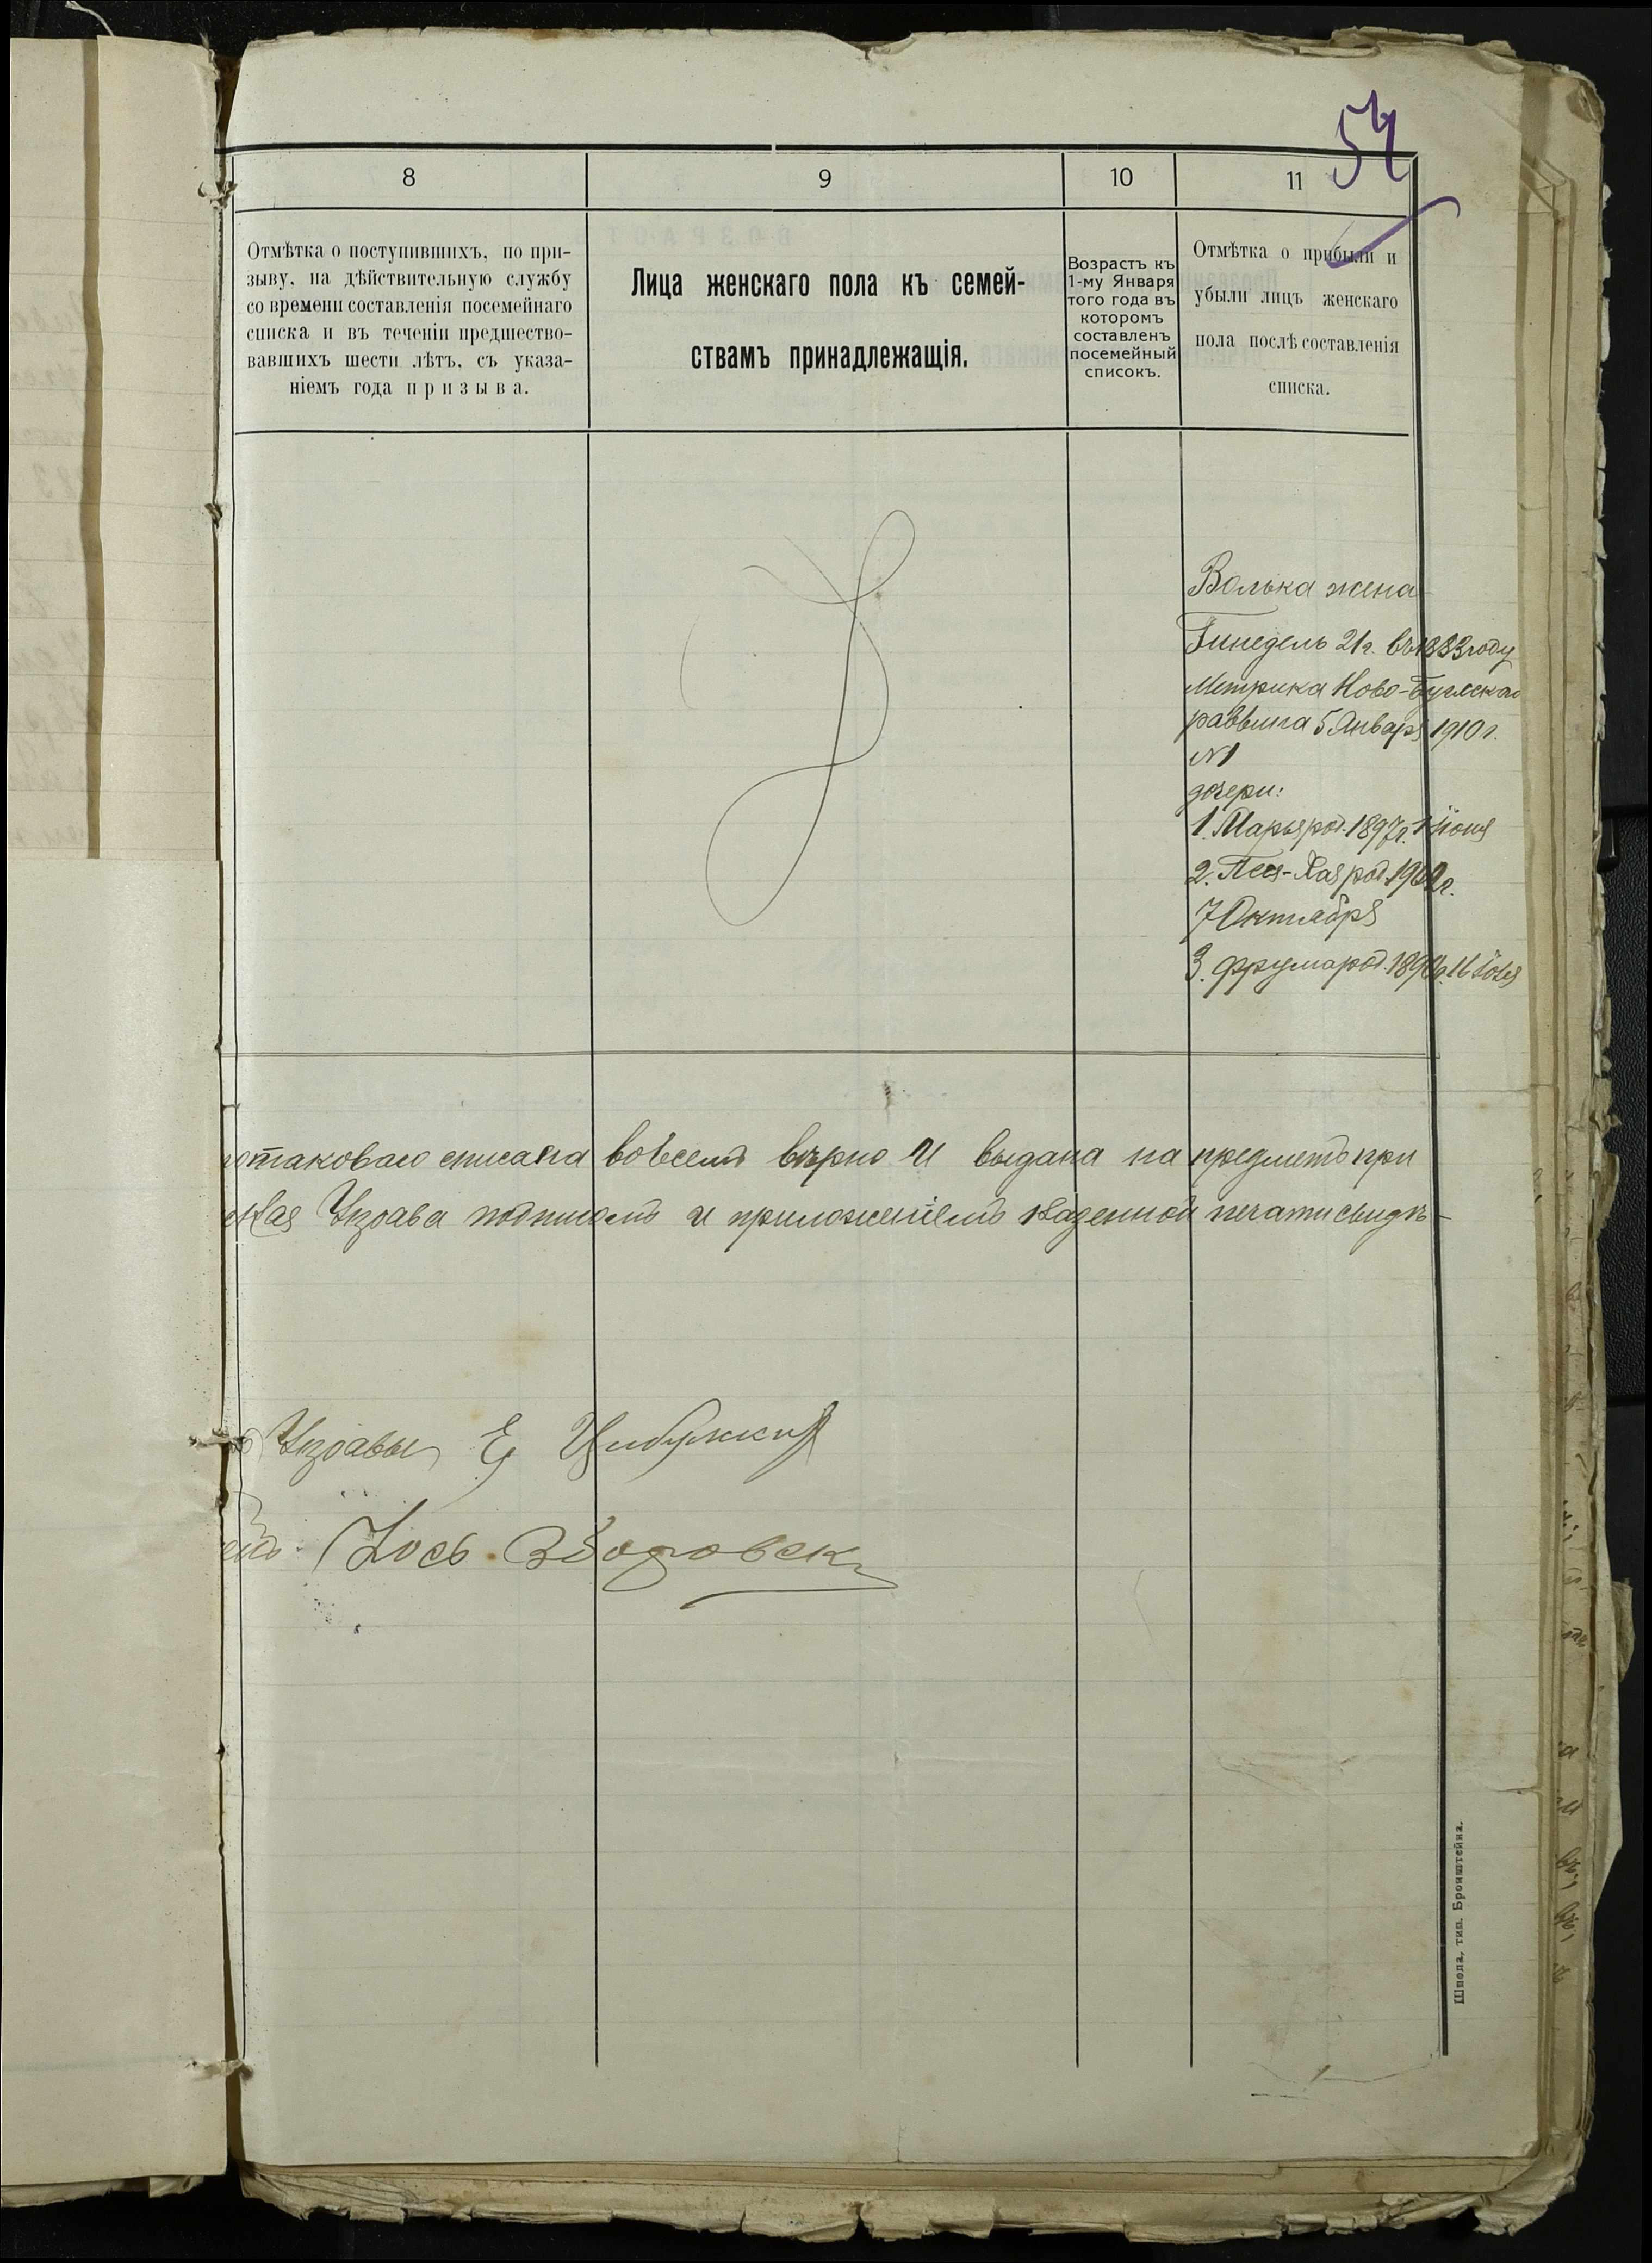 54
8
9
10
11
Отмѣтка о поступившихъ, по при-
зыву, на дѣйствительную службу
со времени составленія посемейнаго
списка и въ теченіи предшество-
вавшихъ шести лѣтъ, съ указа-
ніемъ года призыва.
Лица женскаго пола къ семей-
ствамъ принадлежащія.
Возрастъ къ
1-му Января
того года въ
которомъ
составленъ
посемейный
списокъ.
Отмѣтка о прибыли и
убыли лицъ женскаго
пола послѣ составленія
списка.
Волька жена
21г. въ 1883 году
Метрика Ново-
раввина 5 Января 1910 г.
№1
дочери:
1. Марья род. 1897г. 1
2. Песя-Хая род. 190
7 Октября
3. Фрума род.
списана вовсемъ вѣрно и выдана на предметъ при
Управа подписомъ и приложеніемъ казенной печати свидѣ-
Управы
Іось
Шпола, тип. Бронштейна.